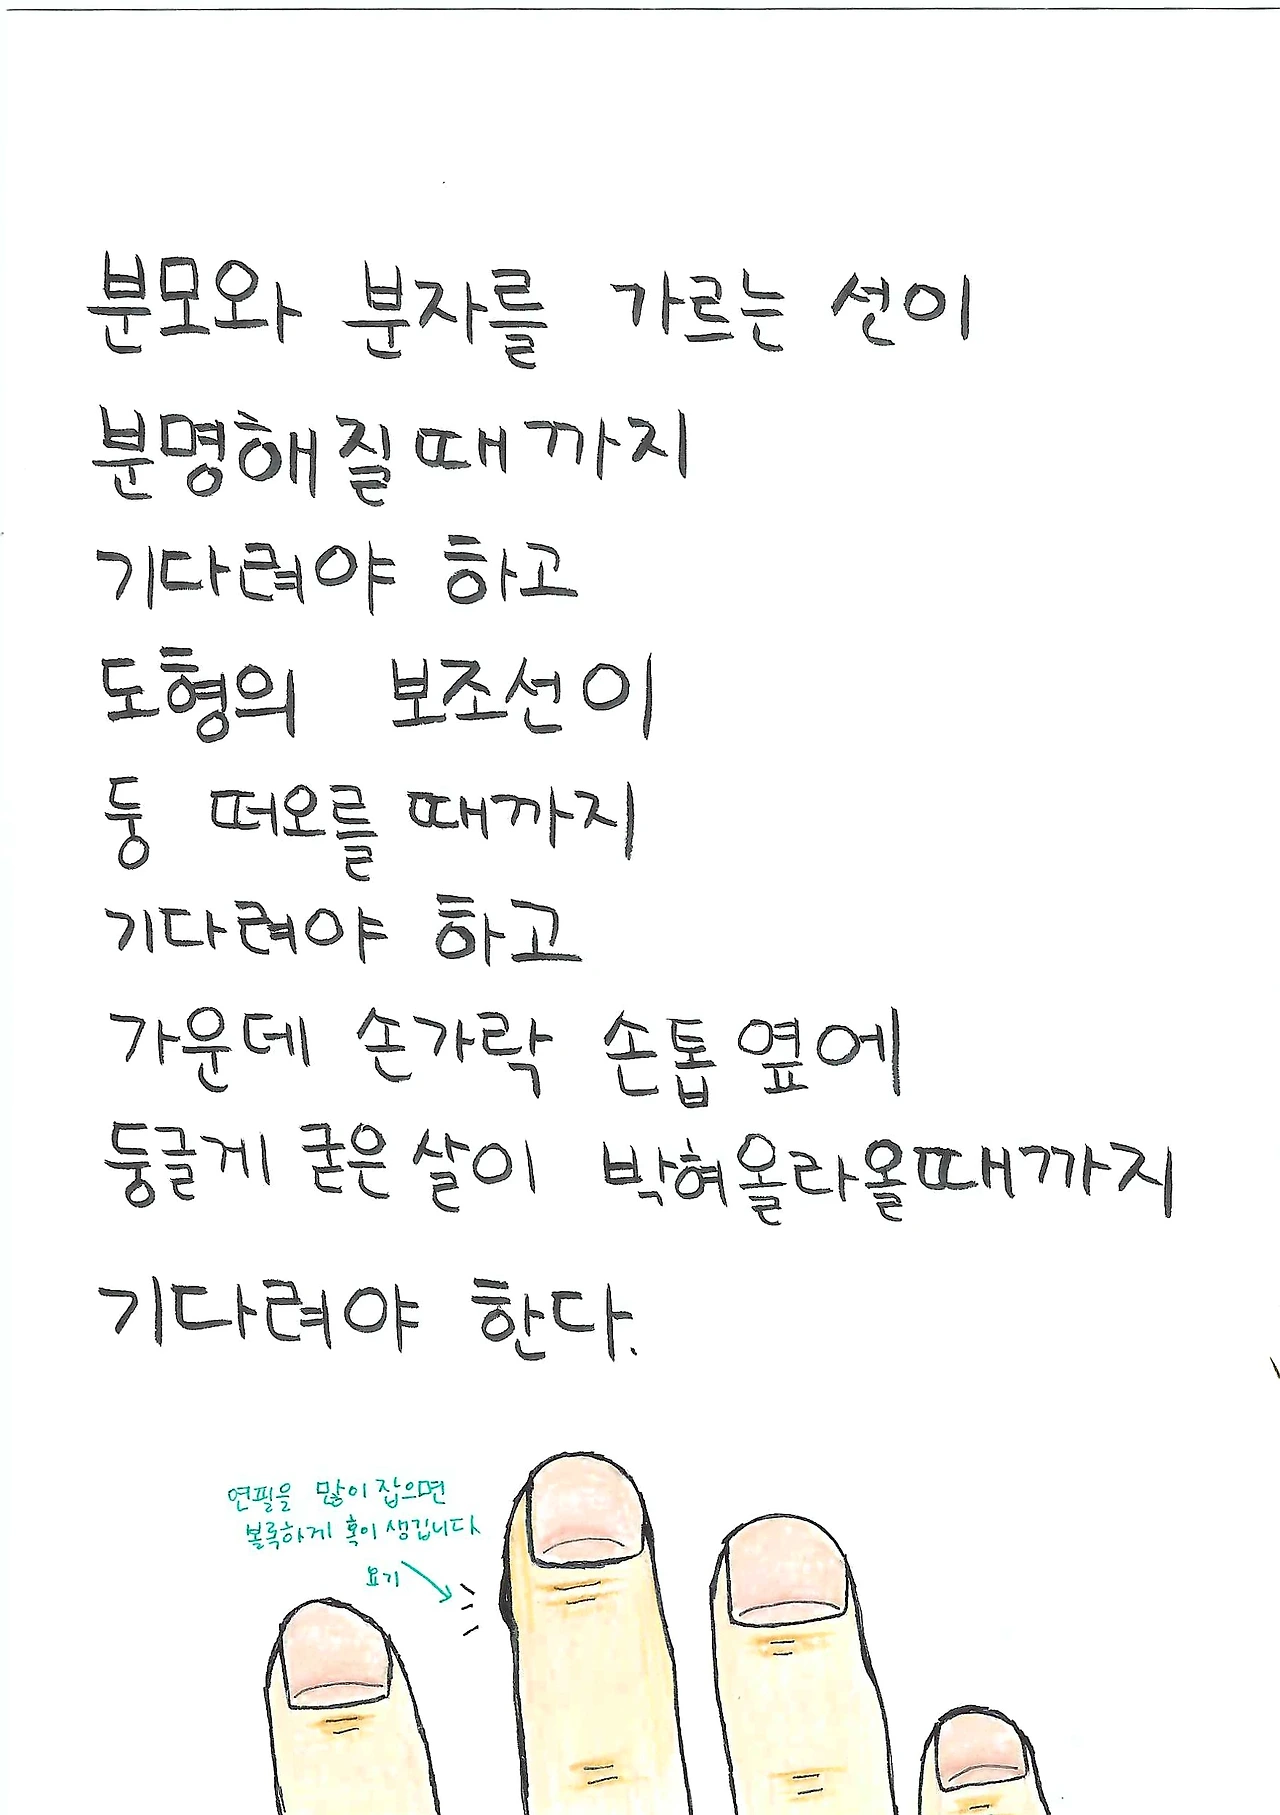 분모와 분자를 가르는 선이
분명해질때까지
기다려야 하고
도형의 보조선이
둥 떠오를 때까지
기다려야 하고
가운데 손가락 손톱 옆에
둥글게 굳은 살이 박혀올라올때까지
기다려야 한다.
연필을 많이 잡으면
볼록하게 혹이 생깁니다
요기